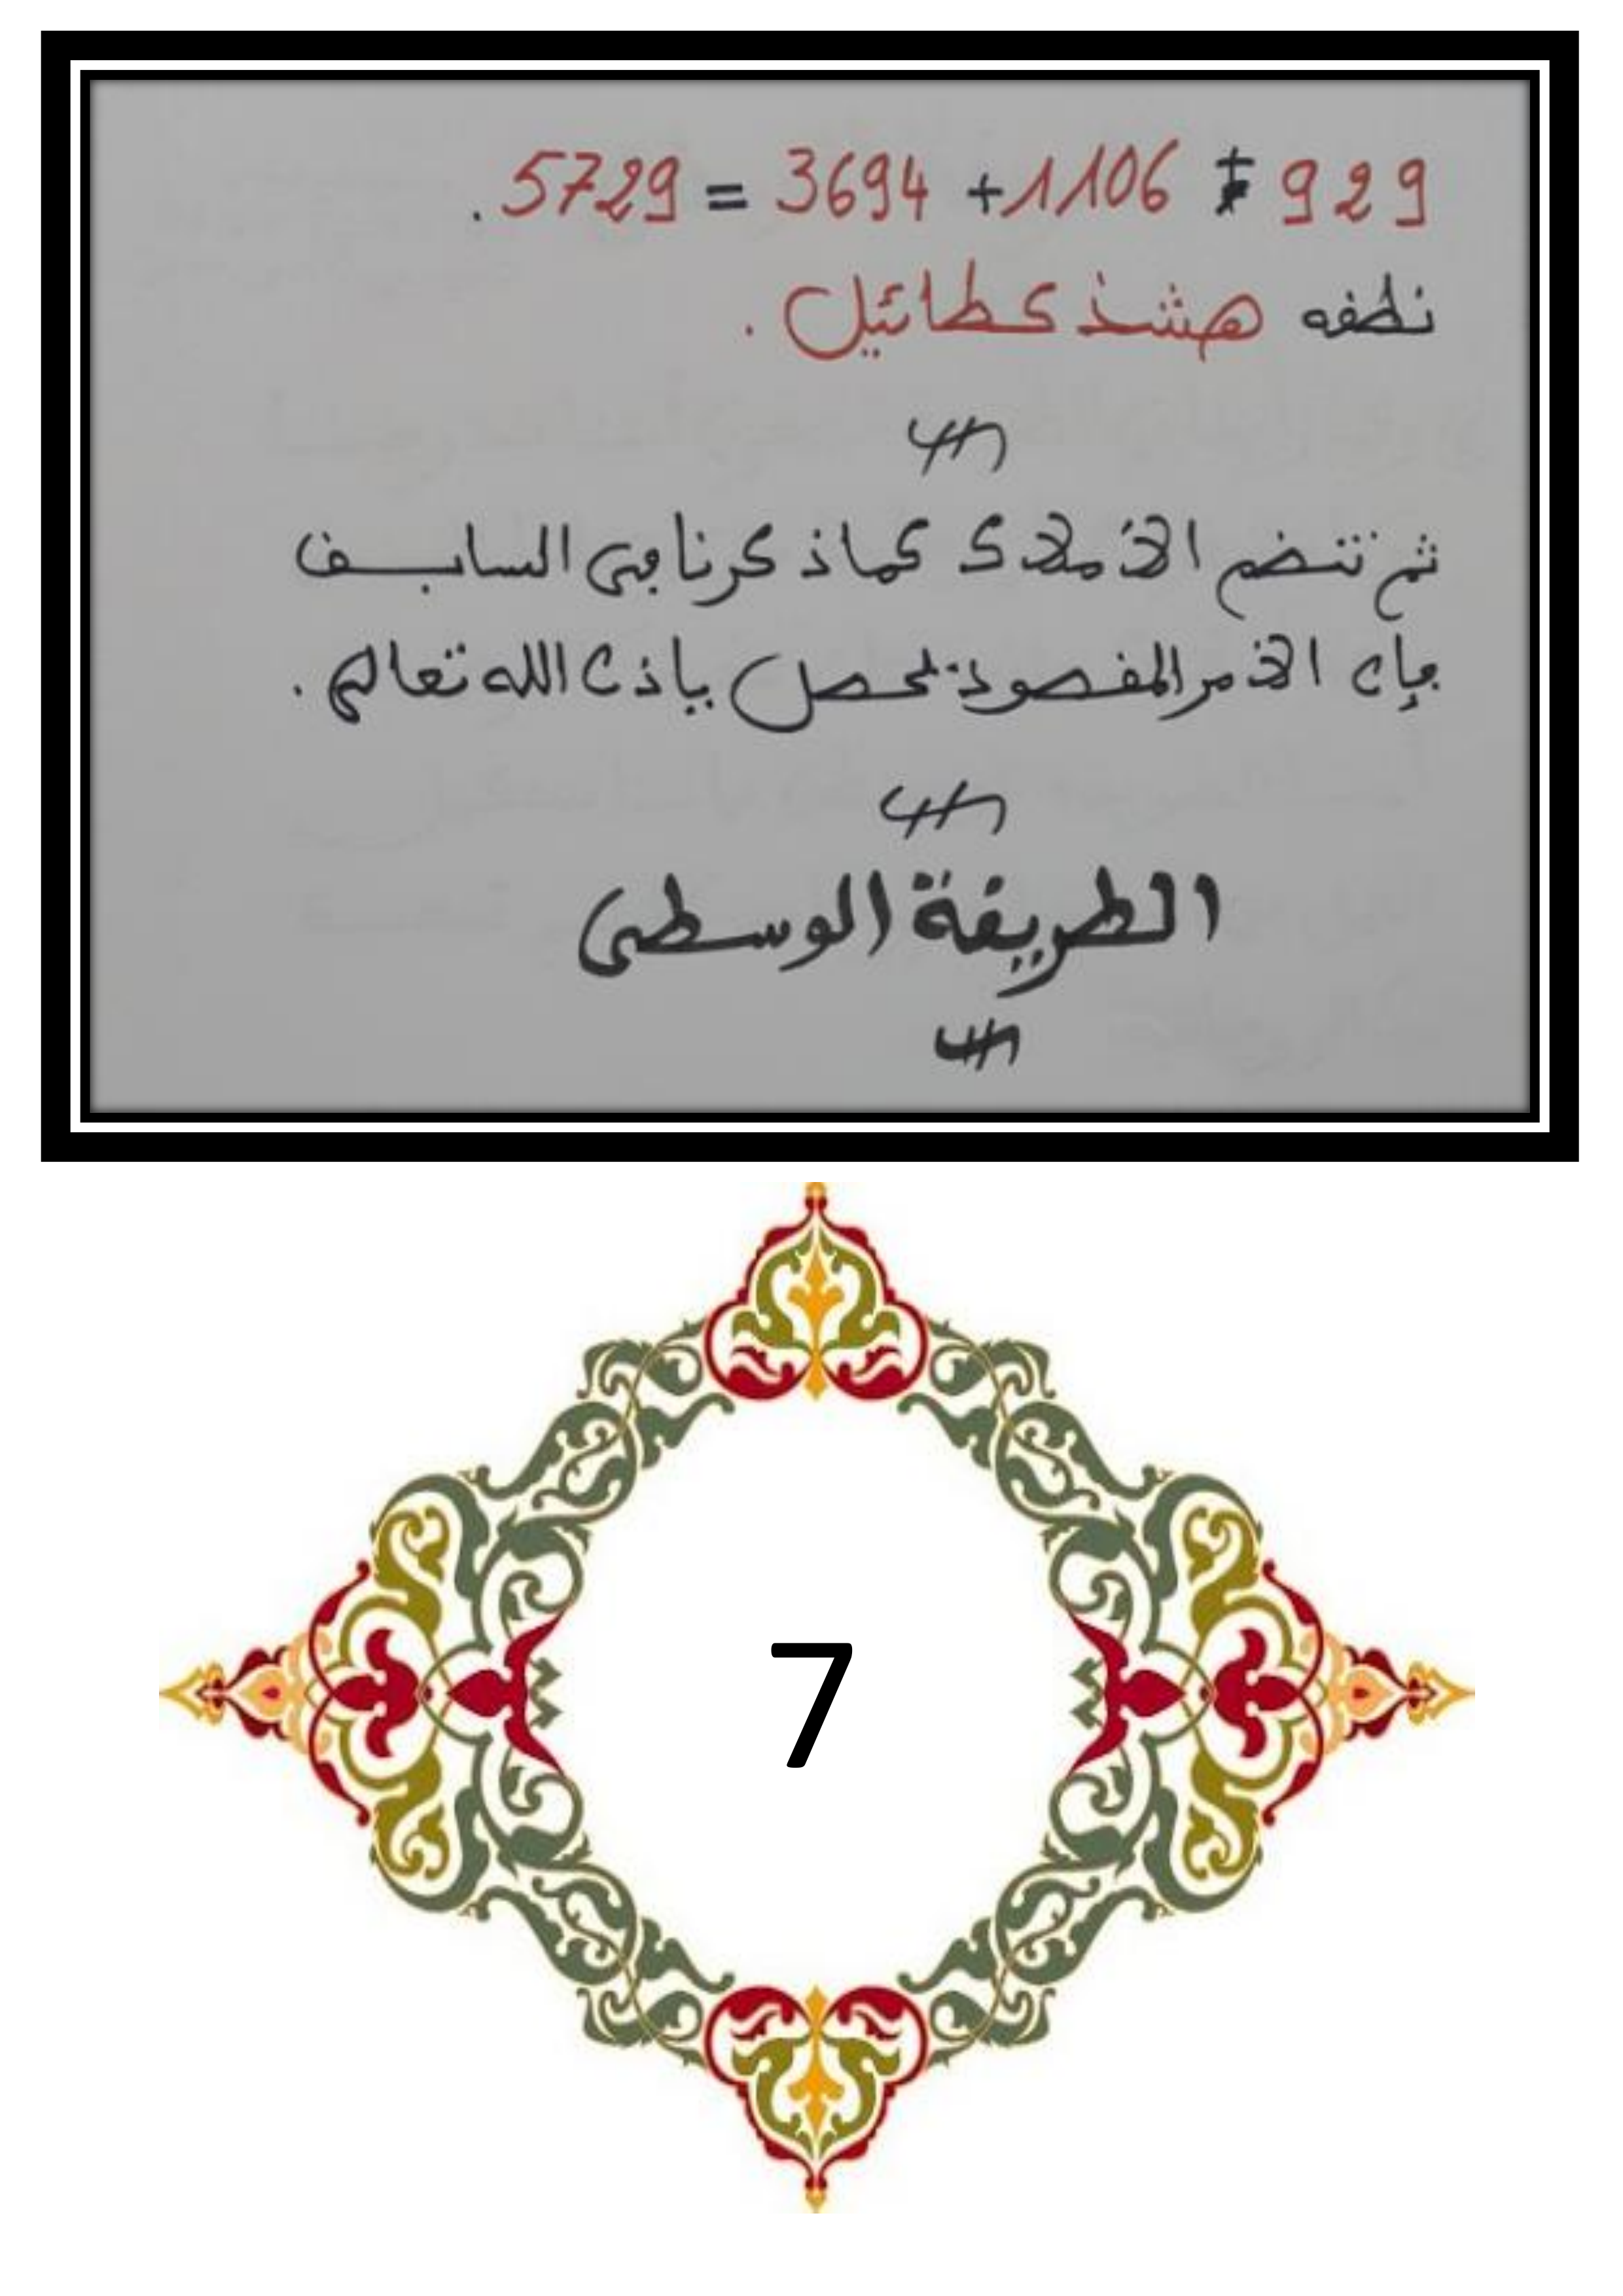 929 + 1106 + 3694 = 5729 .
نطفه هشذكطائيل .
ثم تنضم الأملاك كما ذكرنا في السابق
فإن الأمر المقصود يحصل بإذن الله تعالى .
الطريقة الوسطى
7